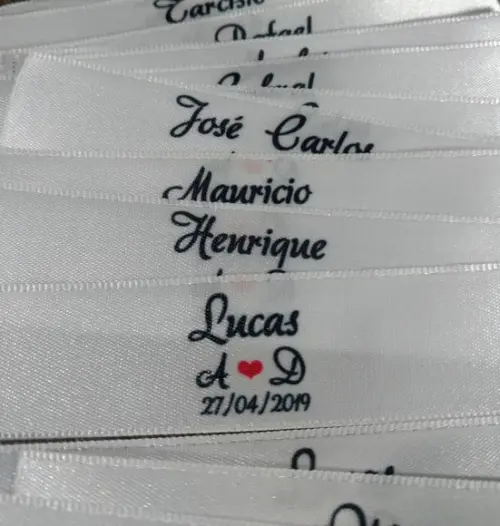 Tarcísio
Rafael
Rafael
José Carlos
Mauricio
Henrique
Lucas
A ❤ D
27/04/2019